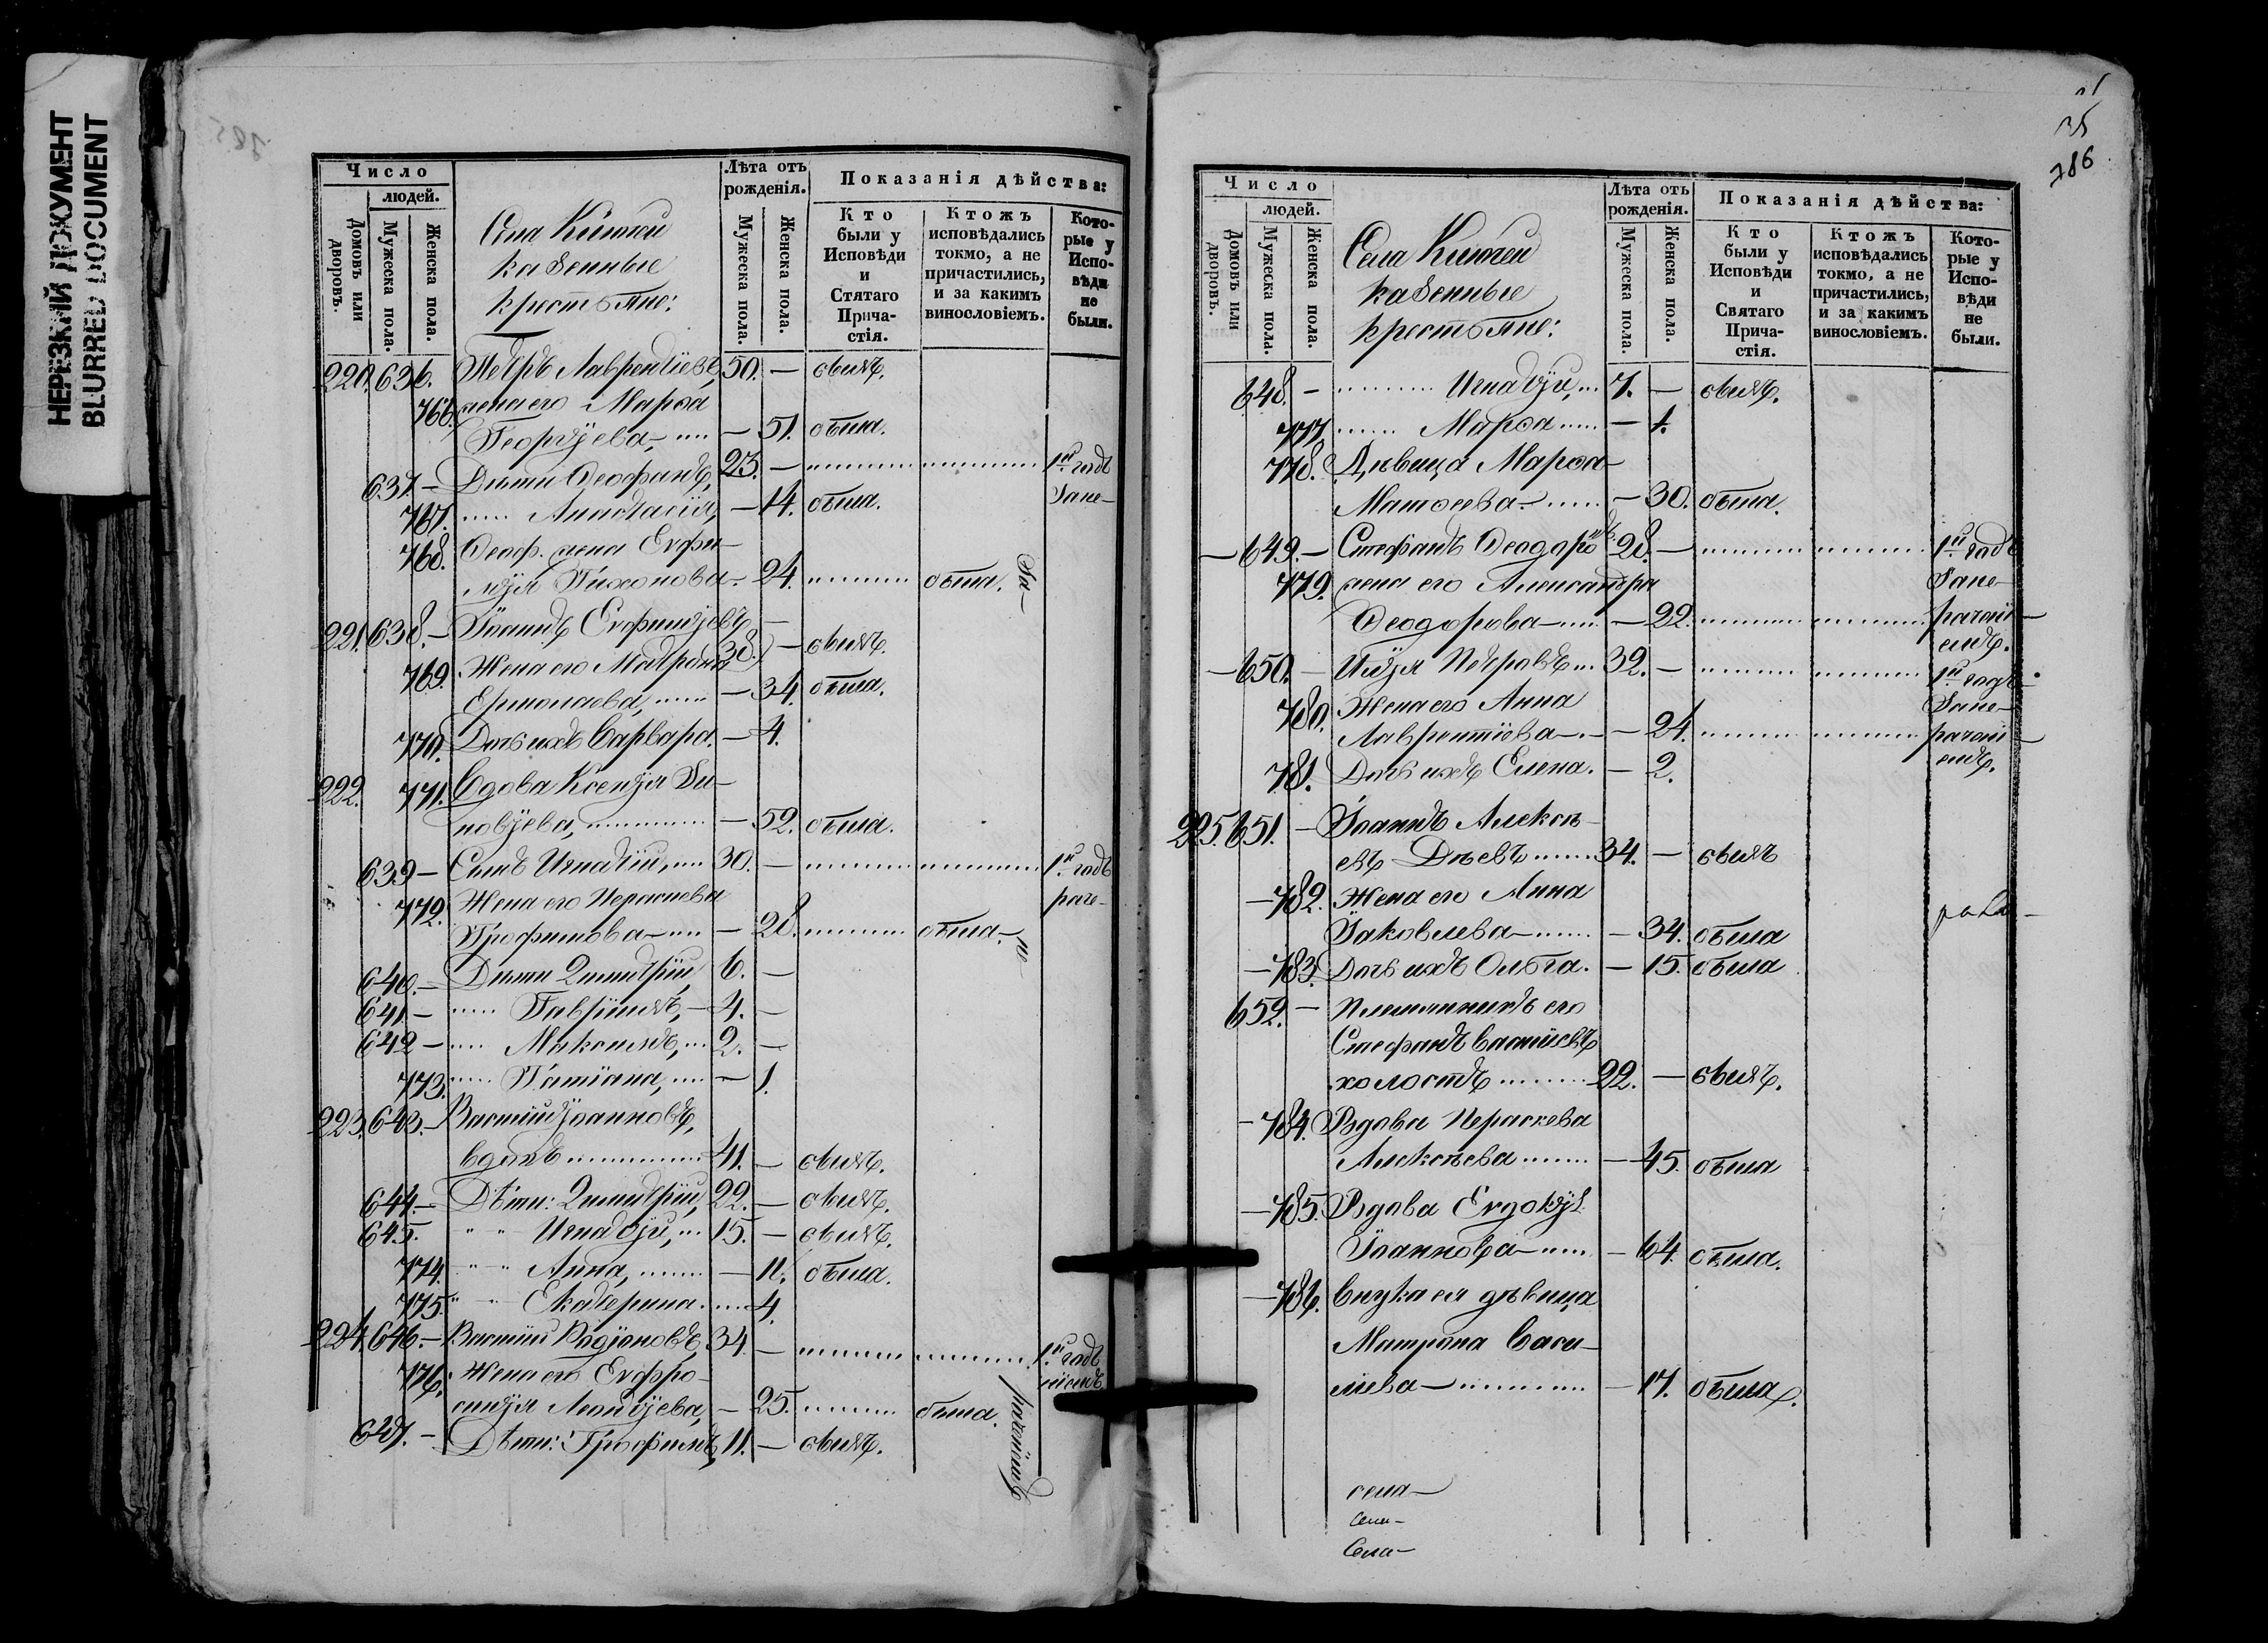 НЕРЕЗКИЙ ДОКУМЕНТ
BLURRED DOCUMENT
Число
людей.
Домовъ или дворовъ.
Мужеска пола.
Женска пола.
Села
казенные
крестьяне:
Лѣта отъ рожденія.
Мужеска пола.
Женска пола.
Показанія дѣйства:
Кто были у Исповѣди и Стятаго Прича-стія.
Ктожъ исповѣдались токмо, а не причастились, и за какимъ винословіемъ.
Кото-рые у Испо-вѣди не были.
220. 636. Петръ Лаврентіевъ, 50. — былъ.
766. жена его Марѳа
Георгіева — 51. была.
637. — Дѣти Ѳеофанъ, 23. — 1й годъ
767. Анастасія, — 14. была. Зане-
768. Ѳеоф. жена Евфи-
мія Тихонова — 24. была. За-
221. 638. — Іоаннъ Евфиміевъ — 38. — былъ.
769. Жена его Матрона
Ермолаева, — 34. была.
770. Дочь ихъ Варвара. — 4.
222. 771. Вдова Ксенія Зи-
новіева, — 52. была.
639 — Сынъ Игнатій, 30. — 1й годъ
772. Жена его Параскева раче-
Трофимова — 28. была. не-
640. — Дѣти Димитрій, 6. —
641. — Гавріилъ, 4. —
642 — Максимъ, 2. —
773. Татіана, — 1.
223. 643. — Василій Іоанновъ,
вдовъ 41. — былъ.
644. — Дѣти: Димитрій, 22. — былъ.
645. " " Игнатій, 15. — былъ.
774. " " Анна, — 11. была.
775. " " Екатерина. 4.
224. 646. — Василій Родіоновъ, 34. — 1й годъ
776. Жена его Евфро-
синія Леонтіева, — 25. была. рачені
647. — Дѣти: Трофимъ, 11. — былъ.
35
786
Число
людей.
Домовъ или дворовъ.
Мужеска пола.
Женска пола.
Села
казенные
крестьяне:
Лѣта отъ рожденія.
Мужеска пола.
Женска пола.
Показанія дѣйства:
Кто были у Исповѣди и Святаго Прича-стія.
Ктожъ исповѣдались токмо, а не причастились, и за какимъ винословіемъ.
Кото-рые у Испо-вѣди не были.
648. — Игнатій, 7. — былъ.
777. Марѳа — 1.
778. Дѣвица Марѳа
Матѳеева — 30. была.
— 649. — Стефанъ Ѳеодоровъ 28. — 1й годъ
779. жена его Александра Зане-
Ѳеодорова — 22. рачені-
емъ.
— 650. — Илія Петровъ 32. — 1й годъ
780. Жена его Анна Зане-
Лаврентіева — 24. рачені-
781. Дочь ихъ Елена. — 2. емъ.
225. 651. — Іоаннъ Алексѣ-
евъ 34. — былъ
— 782. Жена его Анна
Іаковлева — 34. была
— 783. Дочь ихъ Ольга. — 15. была
652. — Племянникъ его
Стефанъ Василіевъ
холостъ 22. — былъ.
— 784. Вдова Параскева
Алексѣева — 45. была
— 785. Вдова Евдокія
Іоаннова — 64. была.
— 786. Внука ея дѣвица
Матрона Васи-
лиева — 17. была.
села
Села
Села